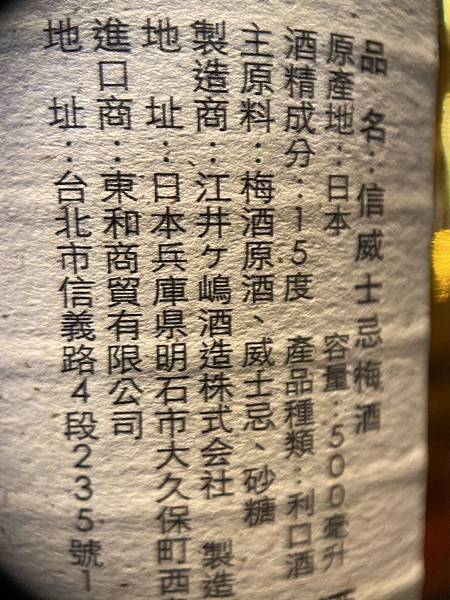 品名：信威士忌梅酒
原產地：日本 容量：500毫升
酒精成分：15度 產品種類：利口酒
主原料：梅酒原酒、威士忌、砂糖
製造商：江井ヶ嶋酒造株式会社 製造
地址：日本兵庫県明石市大久保町西
進口商：東和商貿有限公司
地址：台北市信義路4段235號1